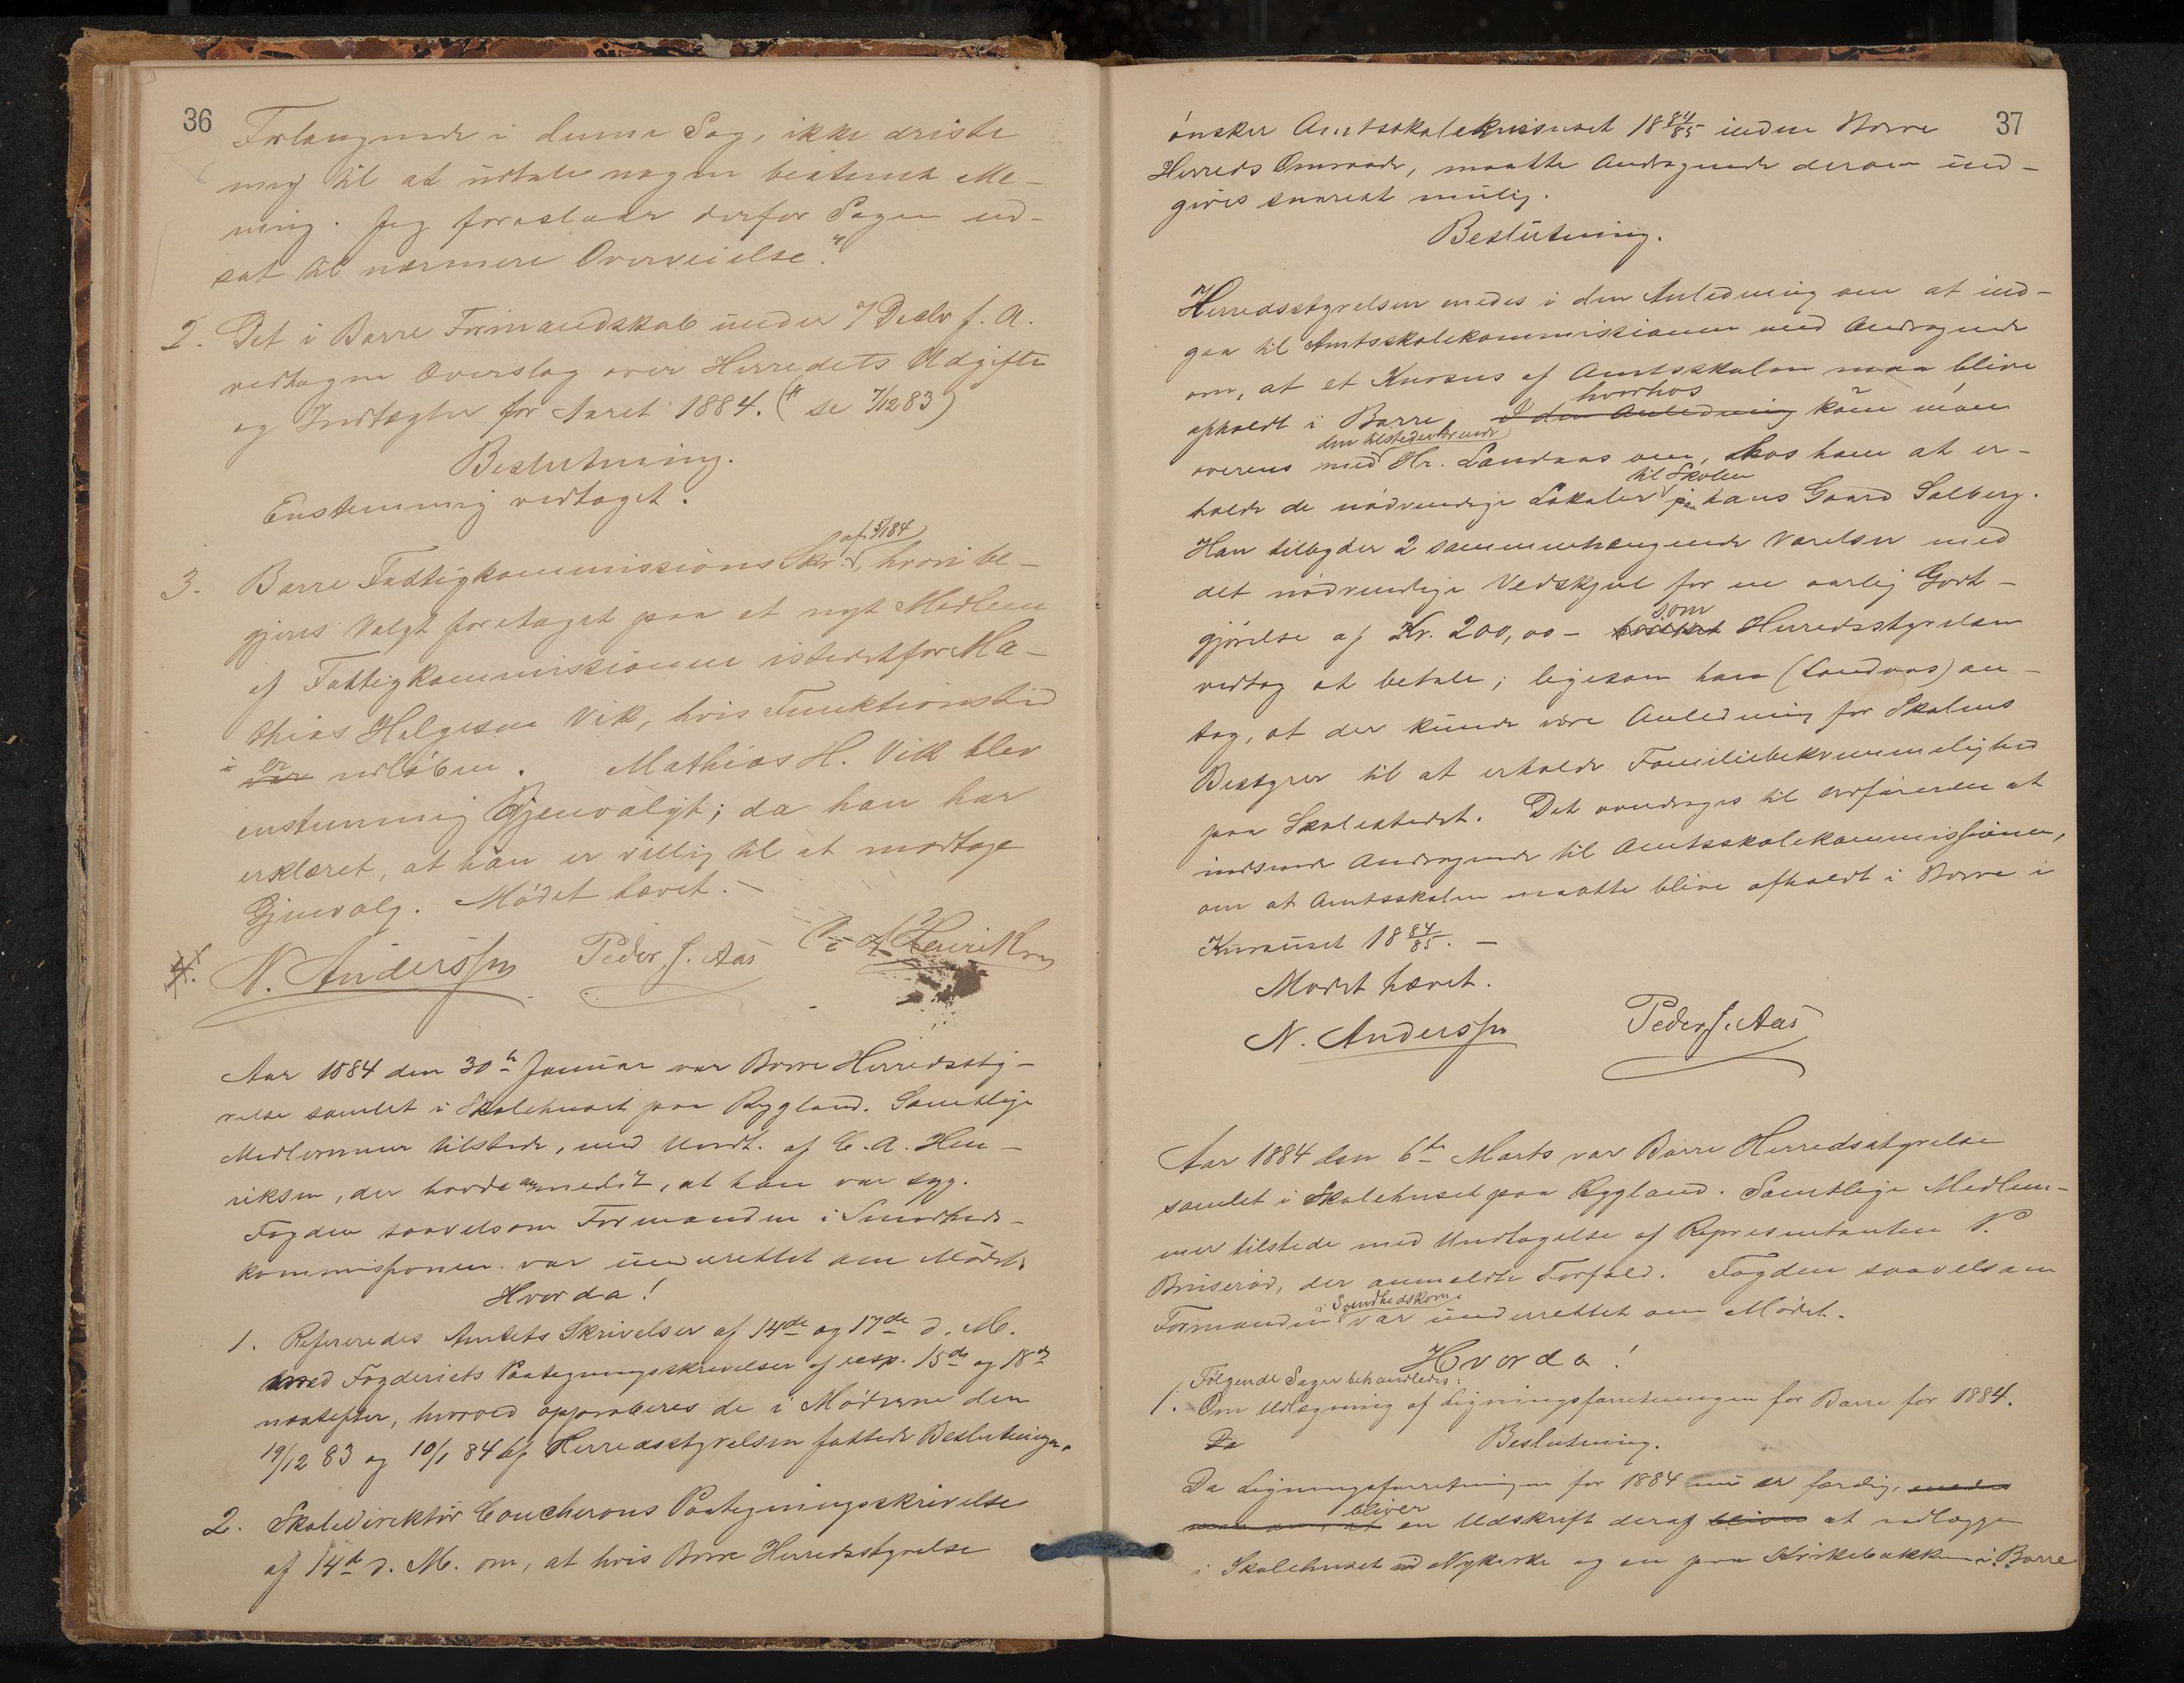 36
Forlangende i denne Sag, ikke driste
mig til at udtale nogen bestemt Me-
ning. Jeg foreslaar derfor Sagen ud-
sat til nærmere Overveielse."
2. Det i Borre Formandskab under 7 Decbr f. A.
vedtagne Overslag over Herredets Udgifter
og Indtægter for Aaret 1884. (se 7/12 83)
Beslutning.
Enstemmig vedtaget.
af 5/1 84
3. Borre Fattigkommissions Skr. hvori be-
gjæres Valgt foretaget paa et nyt Medlem
af Fattigkommissionen istedetfor Ma-
thias Helgesen Vik, hvis Funktionstid
er
var udløben. Mathias H. Vik blev
enstemmig Gjenvalgt; da han har
erklæret, at han er villig til at modtage
Gjenvalg. Mødet hævet. –
N. Anderssen Peder J. Aas C. A. Henriksen
Aar 1884 den 30te Januar var Borre Herredssty-
relse samlet i Skolehuset paa Rygland. Samtlige
Medlemmer tilstede, med Undt. af C. A. Hen-
riksen, der havde anmeldt, at han var syg.
Fogden saavelsom Formanden i Sundheds-
kommissionen var underrettet om Mødet.
Hvorda!
1. Refereredes Amtets Skrivelser af 14de og 17de d. M.
med Fogderiets Paategningsskrivelser af resp. 15de og 18de
næstefter, hvorved approberes de i Møderne den
19/12 83 og 10/1 84 af Herredsstyrelsen fattede Beslutninger.
2. Skoledirektør Coucherons Paategningsskrivelse
af 14de d. M. om, at hvis Borre Herredsstyrelse
37
ønsker Amtsskolekursuset 18 84/85 inden Borre
Herreds Omraade, maatte Andragende derom ind-
gives snarest mulig.
Beslutning.
Herredsstyrelsen enedes i den Anledning om at ind-
gaa til Amtsskolekommissionen med Andragende
om, at et Kursus af Amtsskolen maa blive
hvorhos
afholdt i Borre, I den Anledning kom man
den tilstedeværende
overens med Hr. Landaas om, hos ham at er-
til Skolen
holde de nødvendige Lokaler paa hans Gaard Solberg.
Han tilbyder 2 sammenhængende Værelser med
det nødvendige Vedskjul for en aarlig Godt-
som
gjørelse af Kr. 200,00 – hvilket Herredsstyrelsen
vedtog at betale; ligesom han (Landaas) an-
tog, at der kunde være Anledning for Skolens
Bestyrer til at erholde Familiebekvemmelighed
paa Skolestedet. Det overdrages til Ordføreren at
indsende Andragende til Amtsskolekommissionen,
om at Amtsskolen maatte blive afholdt i Borre i
Kursuset 18 84/85. –
Mødet hævet.
N. Anderssen Peder J. Aas
Aar 1884 den 6te Marts var Borre Herredsstyrelse
samlet i Skolehuset paa Rygland. Samtlige Medlem-
mer tilstede med Undtagelse af Repræsentanten N.
Bruserød, der anmeldte Forfald. Fogden saavelsom
i Sundhedskom.
Formanden var underrettet om Mødet.
Hvorda!
Følgende Sager behandledes:
1. Om Udlægning af Ligningsforretningen for Borre for 1884.
Da Beslutning.
Da Ligningsforretningen for 1884 nu er færdig, enedes
bliver
man om, at en Udskrift deraf bliver at udlægge
i Skolehuset ved Nykirke og en paa Kirkebakken i Borre